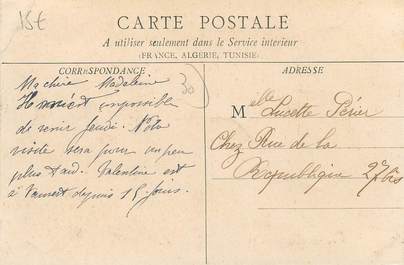 15€
CARTE POSTALE
A utiliser seulement dans le Service intérieur
(FRANCE, ALGERIE, TUNISIE)
CORRESPONDANCE
ADRESSE
30
Ma chère Madeleine
impossible
de venir jeudi. Notre
visite sera pour un peu
plus tard. Valentine est
à depuis 15 jours.
Melle Lucette Périer
Chez Rue de la
République 27bis